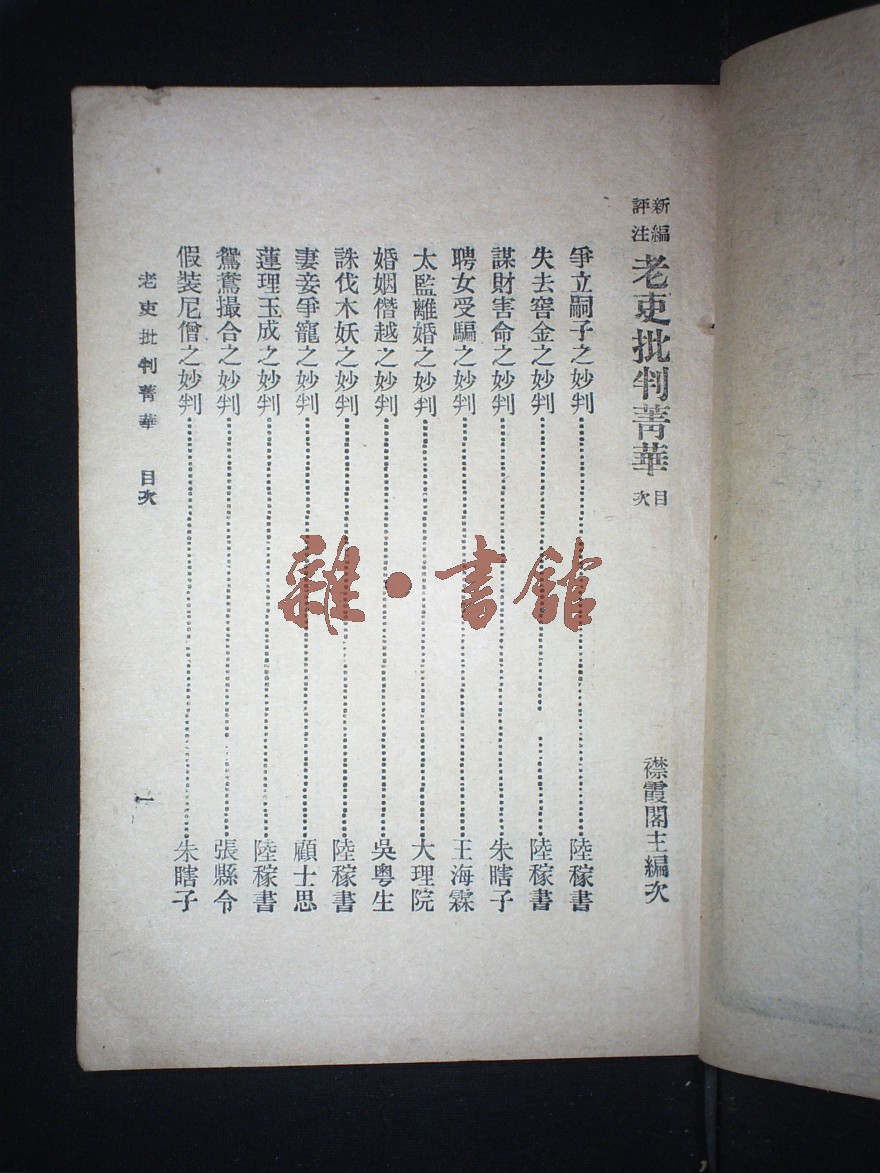 新編評注老吏批判菁華目次
襟霞閣主編次
爭立嗣子之妙判 陸稼書
失去窖金之妙判 陸稼書
謀財害命之妙判 朱瞎子
聘女受騙之妙判 王海霖
太監離婚之妙判 大理院
婚姻僭越之妙判 吳粵生
誅伐木妖之妙判 陸稼書
妻妾爭寵之妙判 顧士思
蓮理玉成之妙判 陸稼書
鴛鴦撮合之妙判 張縣令
假裝尼僧之妙判 朱瞎子
老吏批判菁華 目次 一
雜·書館